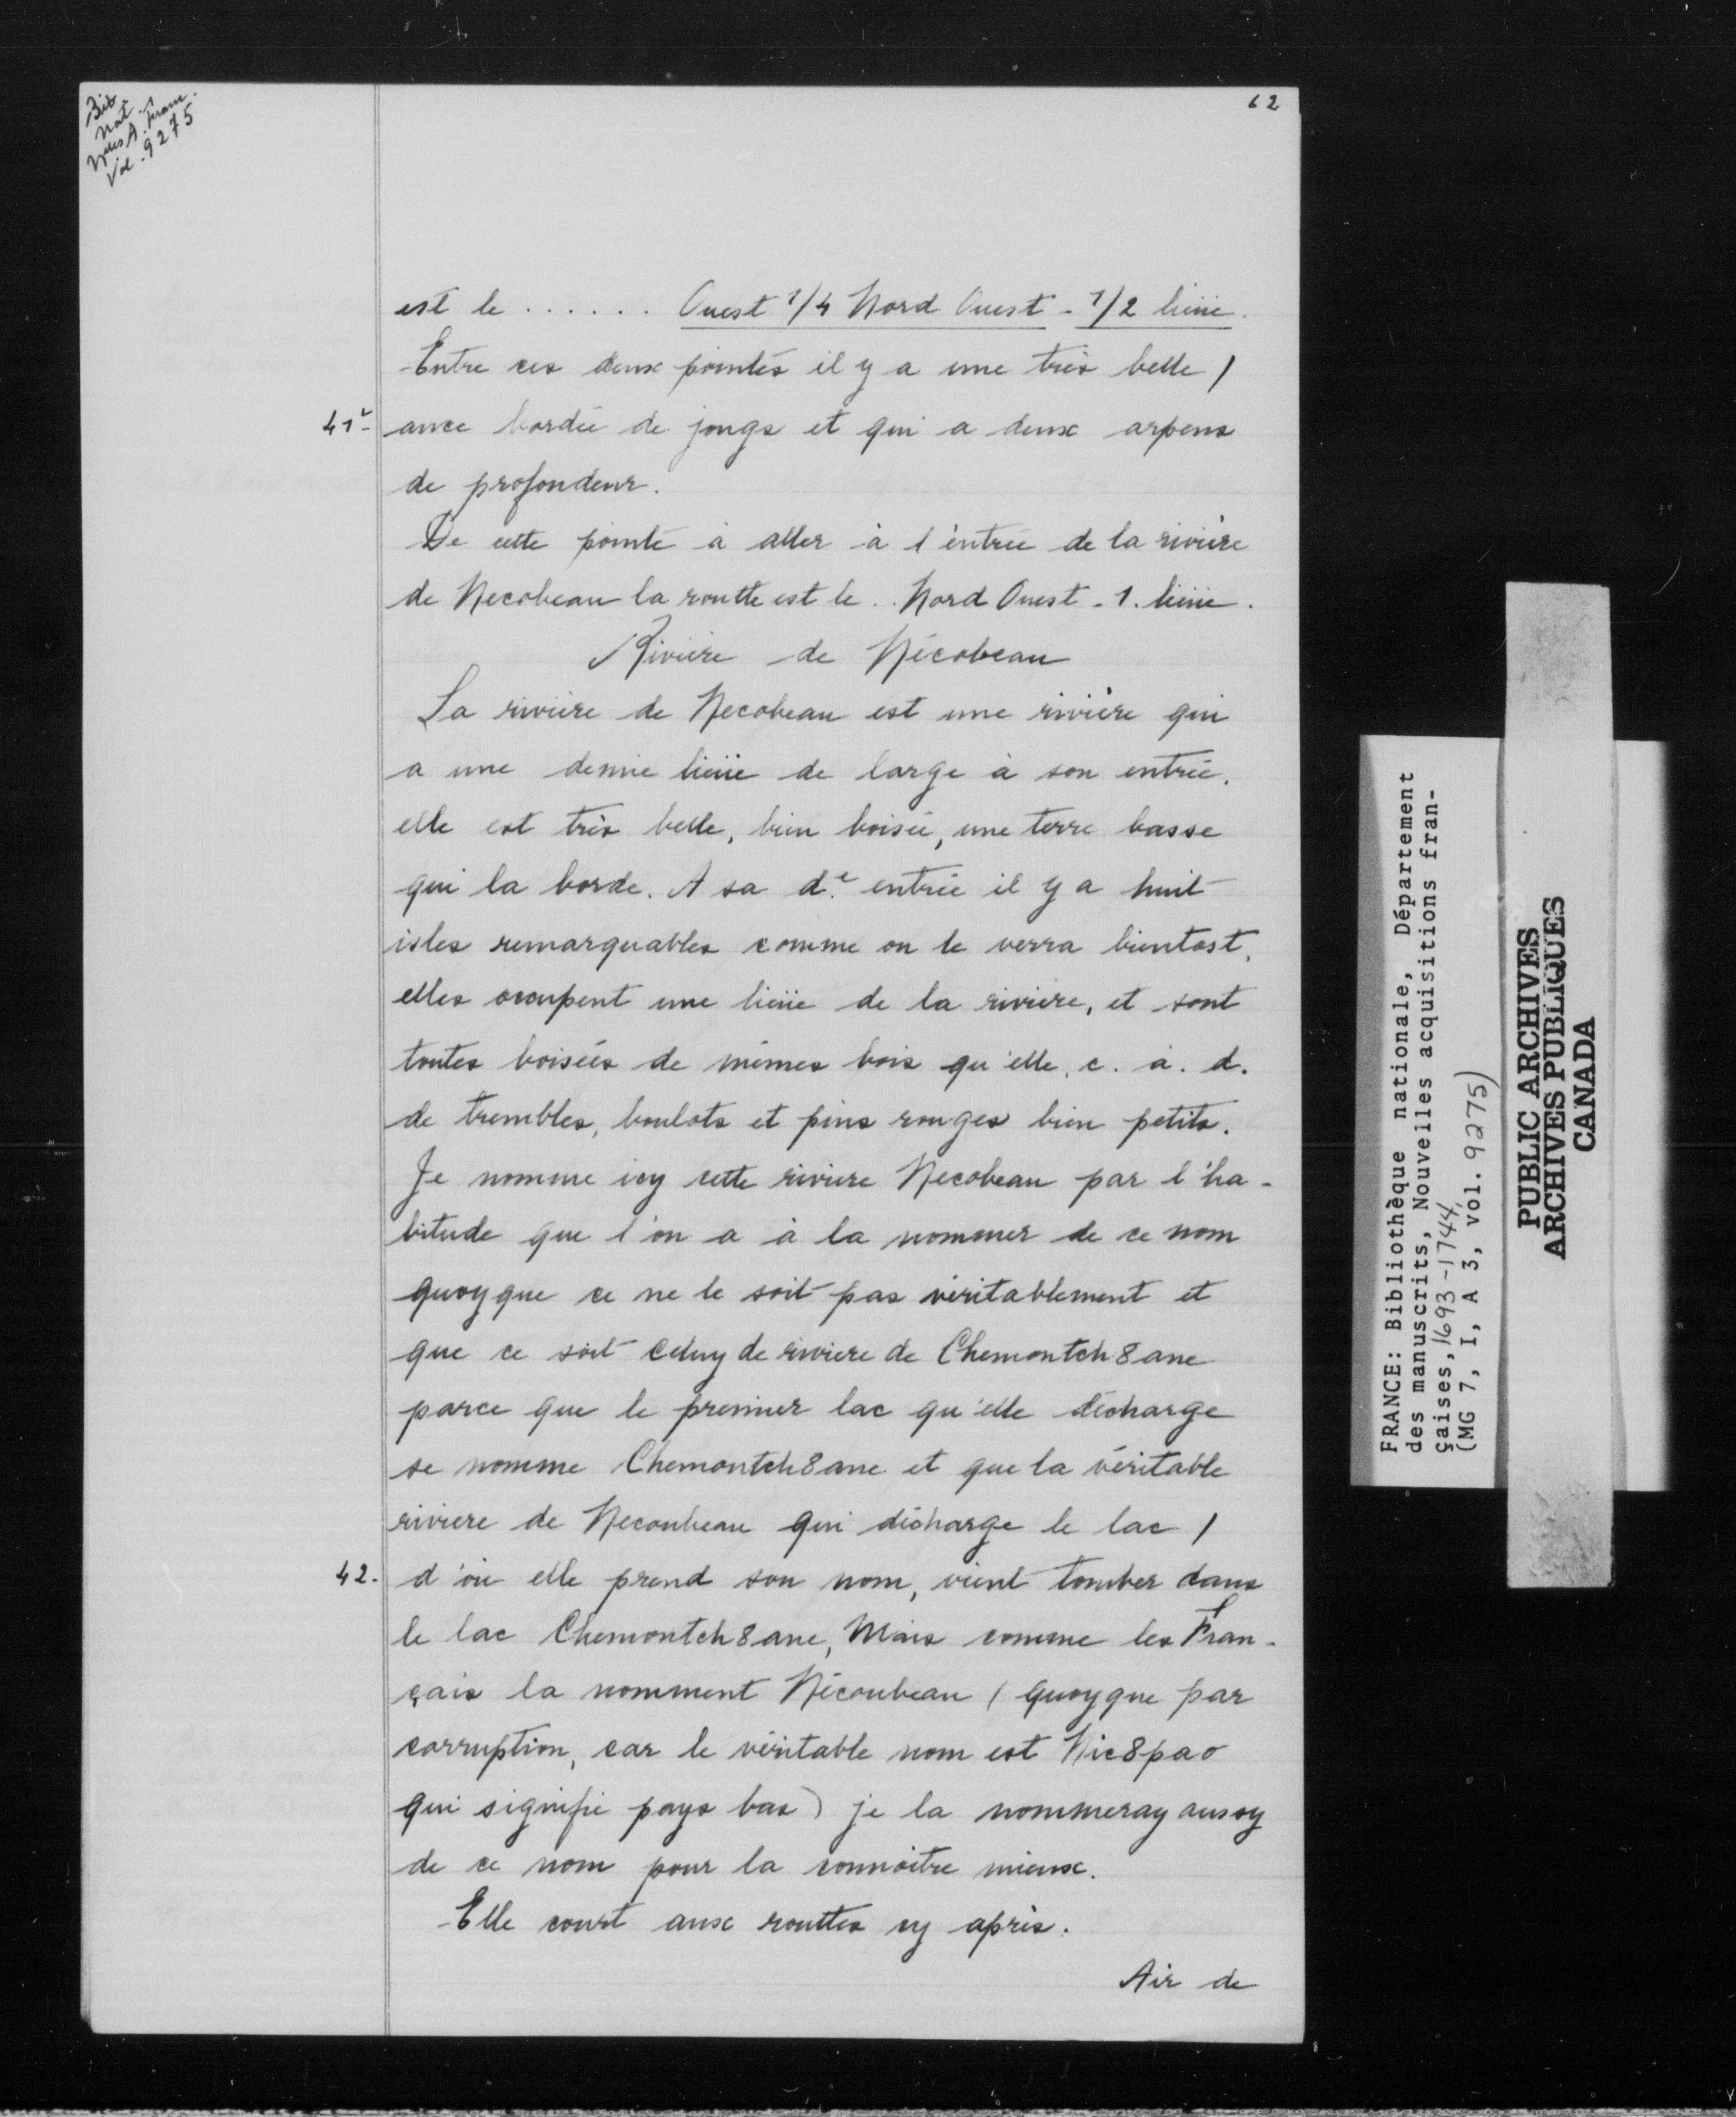 Bib
Nat.
Nelles A. Franc.
Vol. 9275
62
est le . . . . . . Ouest 1/4 Nord Ouest - 1/2 lieüe.
Entre ces deux pointes il y a une très belle /
41v- ance bordée de jongs et qui a deux arpens
de profondeur.
De cette pointe à aller à l'entrée de la rivière
de Necobeau la routte est le . . Nord Ouest - 1. lieüe.
Rivière de Nécobeau
La rivière de Necobeau est une rivière qui
a une demie lieüe de large à son entrée.
elle est très belle, bien boisée, une terre basse
qui la borde. A sa d.e entrée il y a huit
isles remarquables comme on le verra bientost,
elles occupent une lieüe de la riviere, et sont
toutes boisées de mêmes bois qu'elle, c. à. d.
de trembles, boulots et pins rouges bien petits.
Je nomme icy cette riviere Necobeau par l'ha-
bitude que l'on a à la nommer de ce nom
quoyque ce ne le soit pas véritablement et
que ce soit celuy de riviere de Chemontch8ane
parce que le premier lac qu'elle décharge
se nomme Chemontch8ane et que la véritable
riviere de Necoubeau qui décharge le lac /
42. d'où elle prend son nom, vient tomber dans
le lac Chemontch8ane, Mais comme les Fran-
çais la nomment Nécoubeau (quoyque par
corruption, car le véritable nom est Nic8pao
qui signifie pays bas) je la nommeray aussy
de ce nom pour la connoître mieux.
Elle court aux routtes cy après.
Air de
FRANCE: Bibliothèque nationale, Département
des manuscrits, Nouvelles acquisitions fran-
çaises, 1693-1744,
(MG 7, I, A 3, vol. 9275)
PUBLIC ARCHIVES
ARCHIVES PUBLIQUES
CANADA